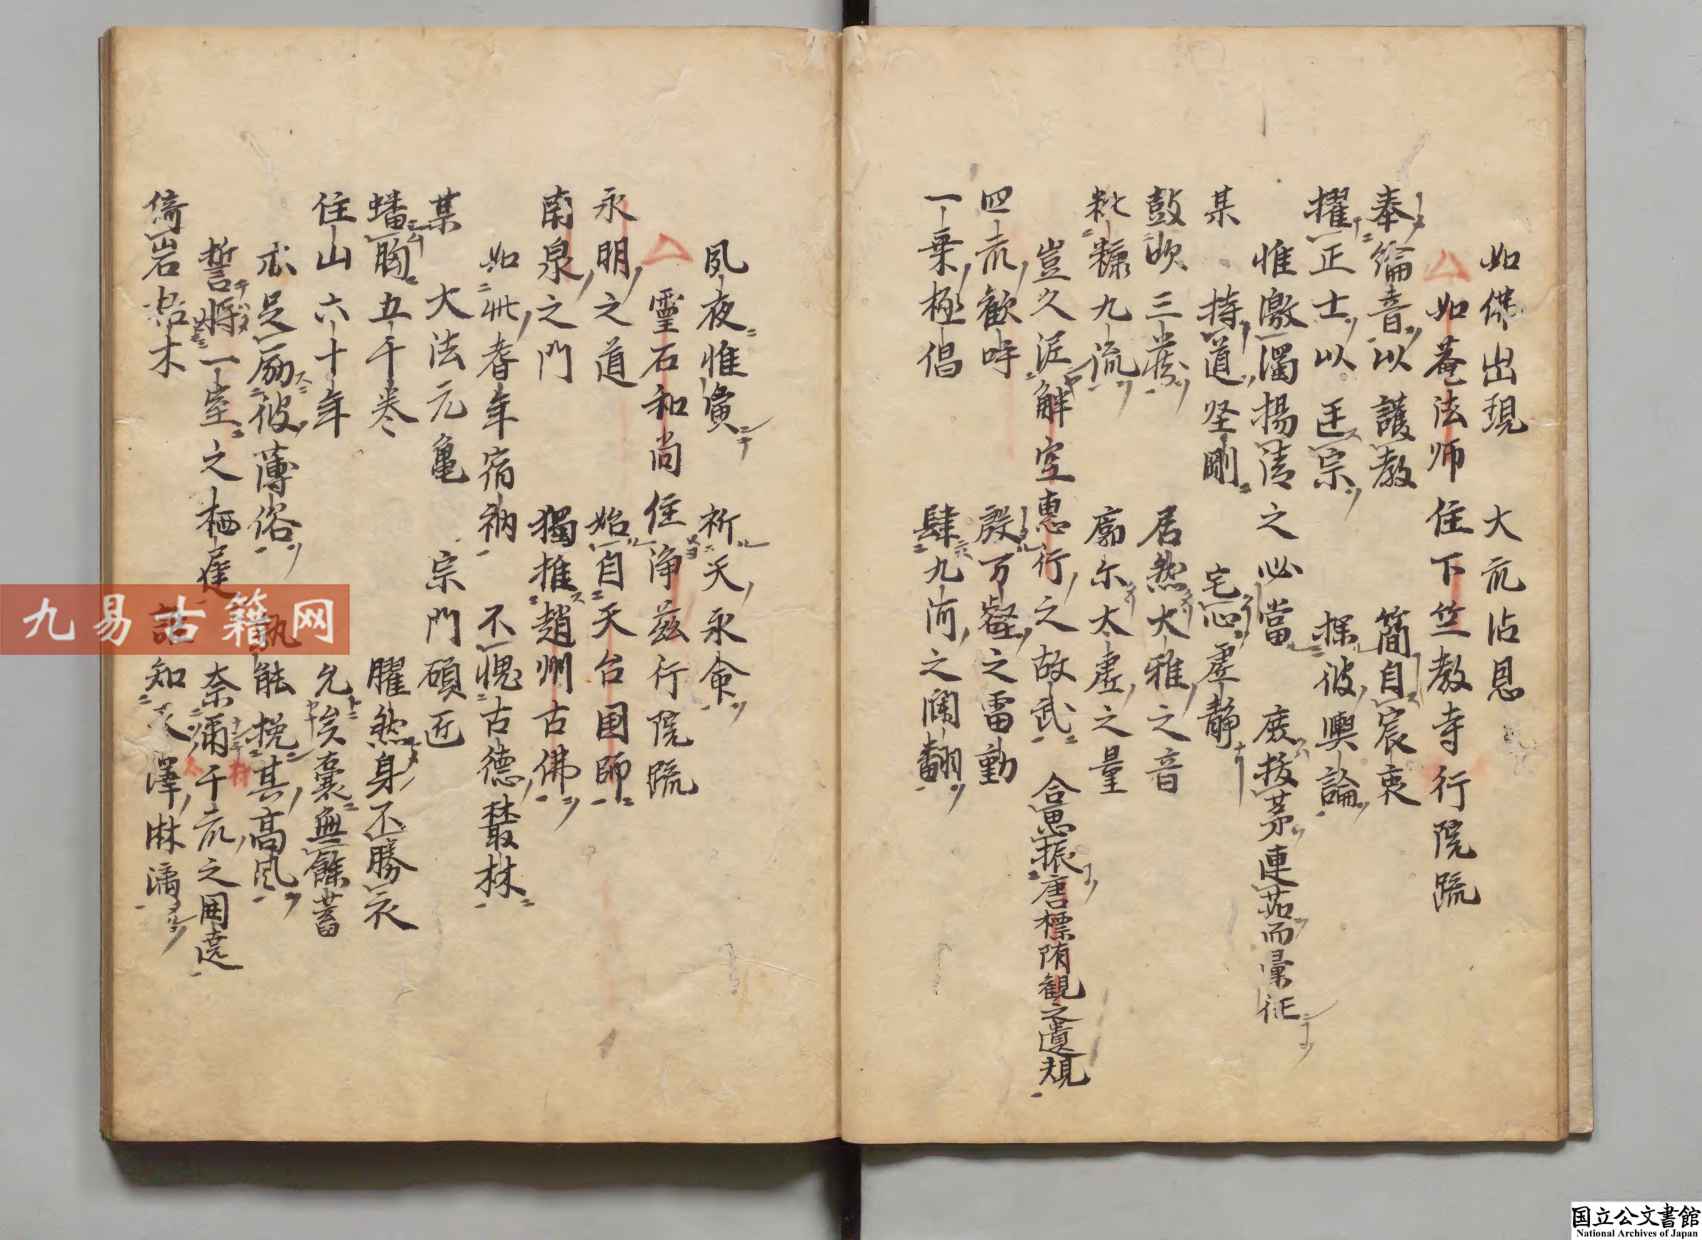 如佛出現　大荒沾恩
如菴法师住下竺教寺行院䟽
奉綸音以護教　簡自宸衷
擢正士以匡宗　採彼輿論
惟激濁揚清之必當　庶拔茅連茹而彙征
某　持道坚剛　宅心虚静
鼓吹三
粃糠九流　廓尔太虚之量
居然大雅之音
四荒歓呼　殷万壑之雷動
一乗極倡　肆九河之瀾翻
豈久泥解空惠行之故武　合思振唐標隋観之遺規
夙夜惟寅　祈天永命
霊石和尚住浄兹行院䟽
永明之道　始自天台国師
南泉之門　獨推趙州古佛
如此耆年宿衲　不愧古德叢林
某　大法元亀　宗門碩匠
蟠胸五千巻　臞然身不勝衣
住山六十年　允矣囊無餘蓄
足励彼薄俗　孰能挽其高風
誓将一室之栖遅　奈滿千衆之囲遶
倚岩枯木　詎知天澤淋漓
九易古籍网
国立公文書館
National Archives of Japan